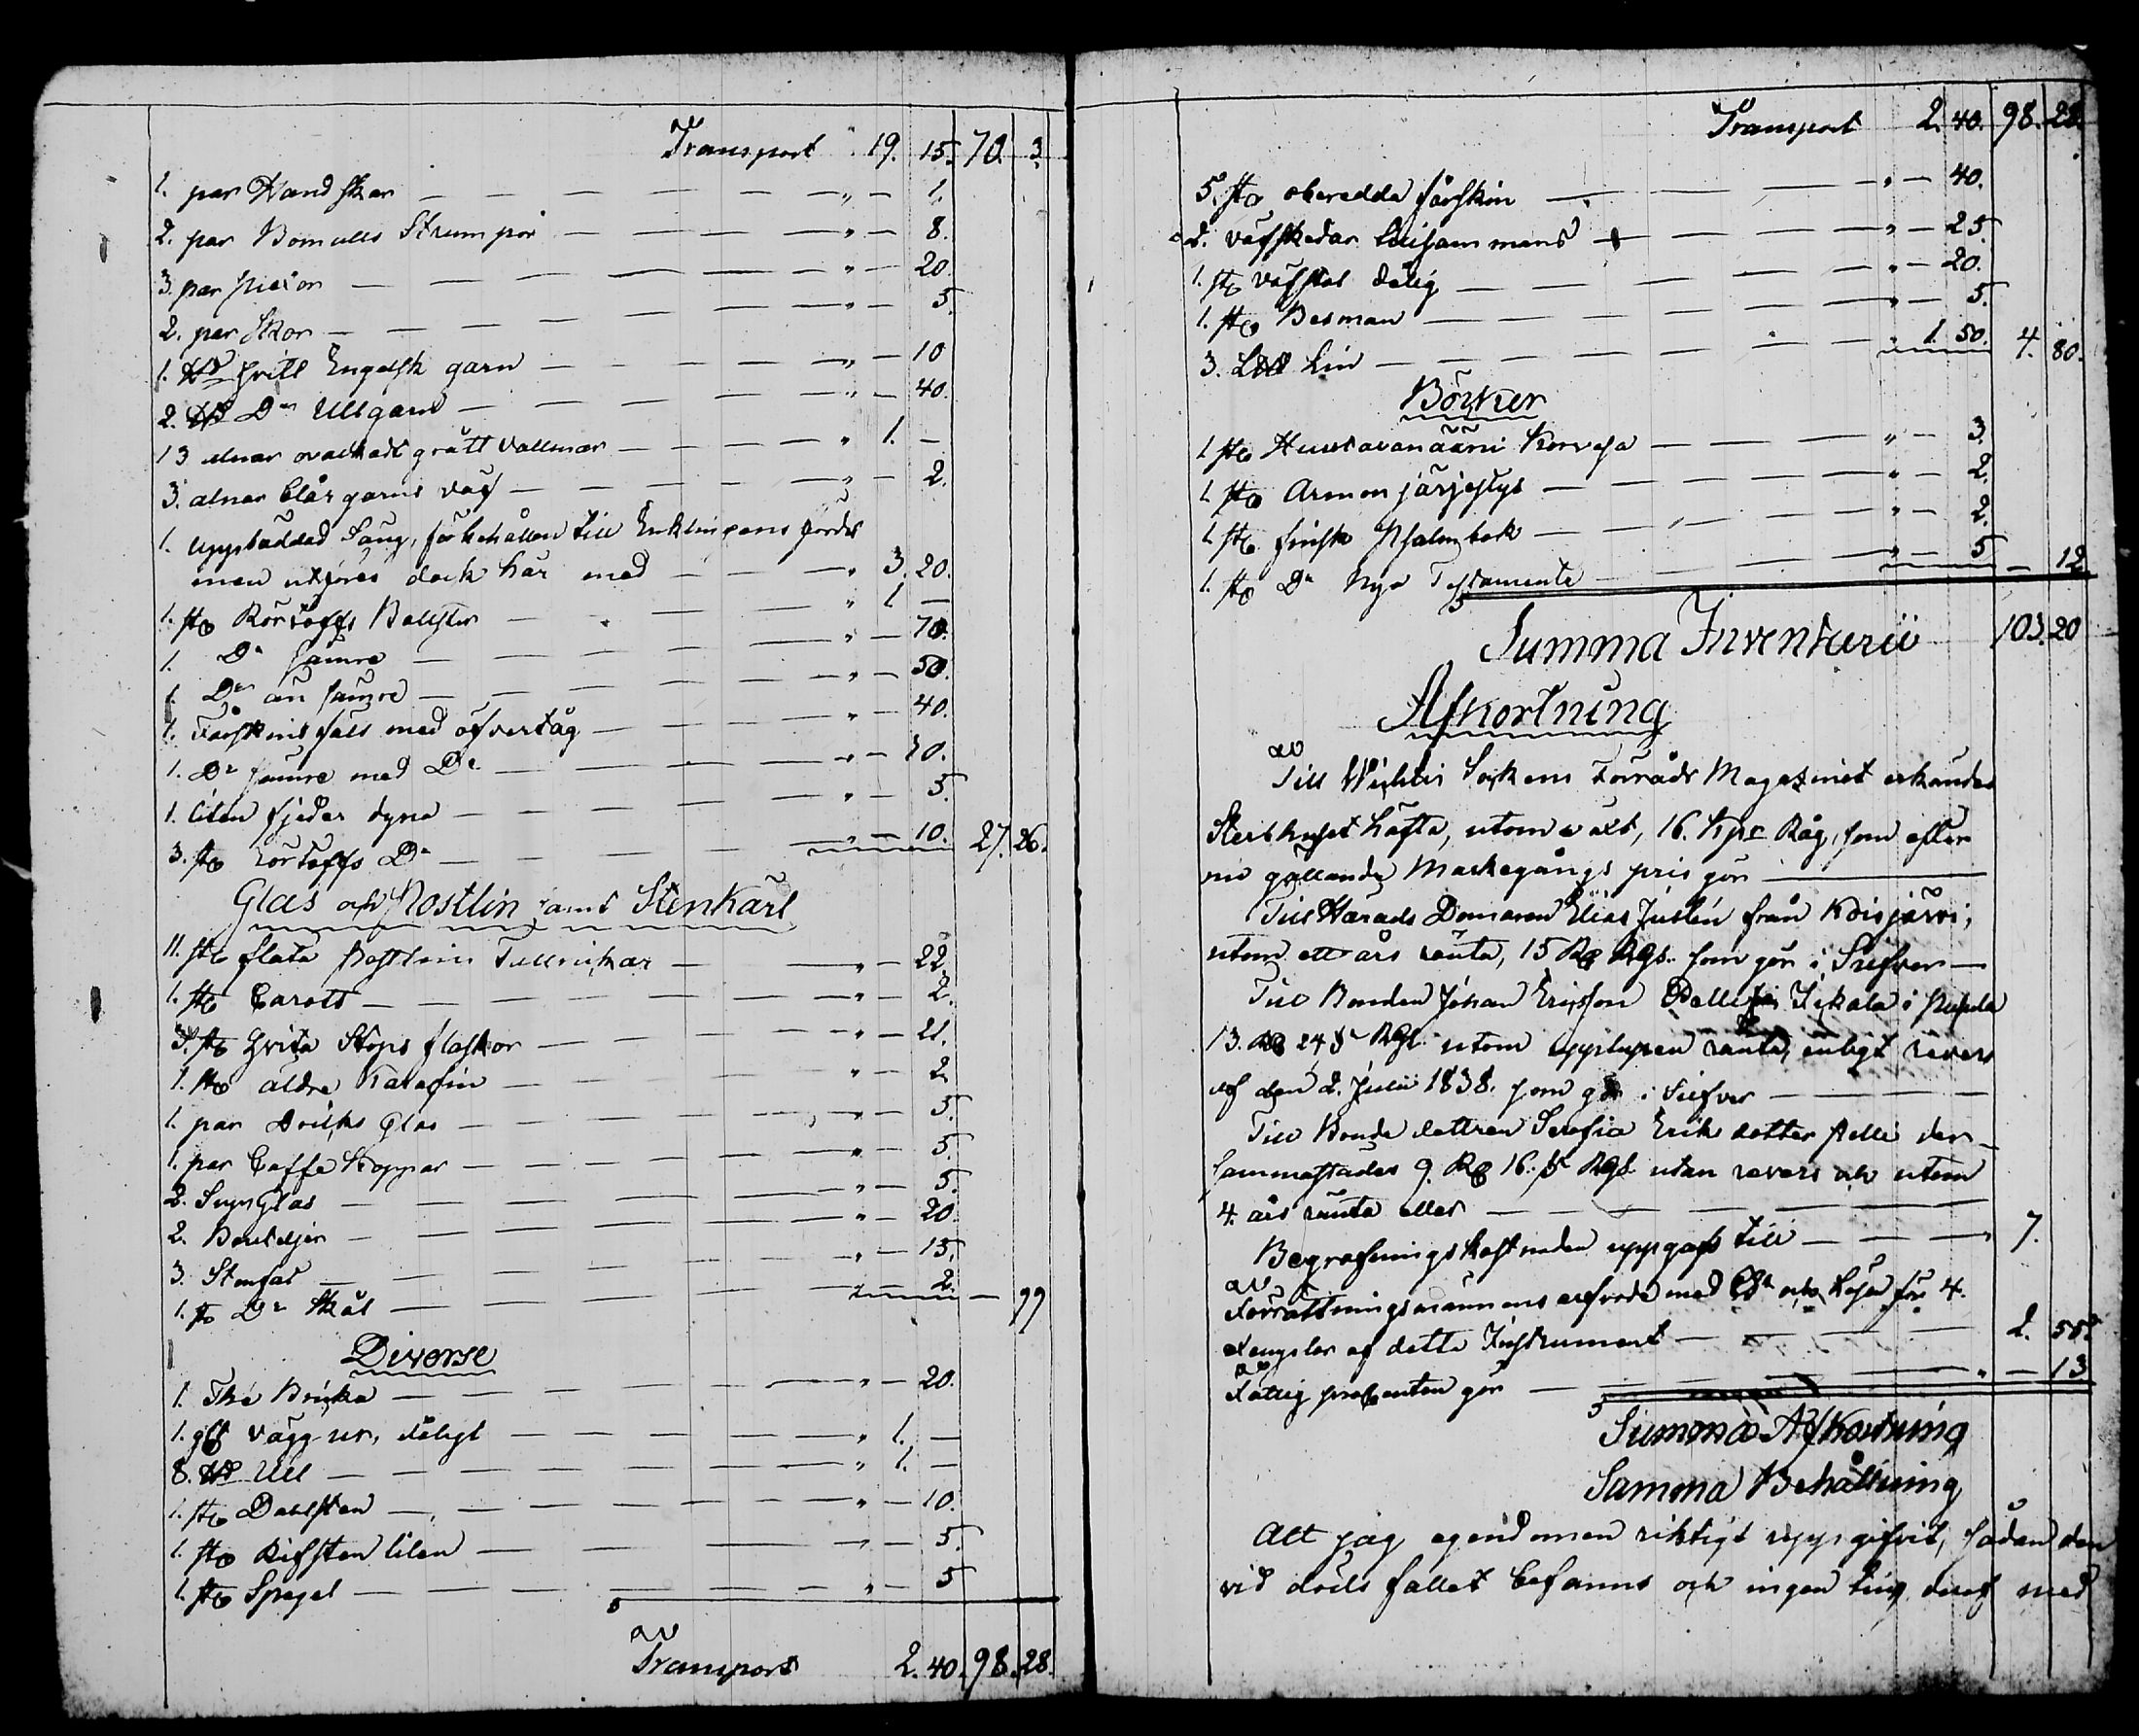 Transport " 19. 15. 70. 3.
1. par Handskar — " — 1.
2. par Bomulls Strumpor — " — 8.
3. par — " — 20.
2. par Skor — " — 5.
1. hvitt Engelsk garn — " — 10
2. Do Ullgarn — " — 40.
13 alnar ovalkadt grått vallmar — " 1. —
3. alnar blårgarns väf — " — 2.
1. uppbäddad Säng, förbehållen till Enklingens fördel
men utföres dock här med — " 3. 20.
1. st Bolster — " 1. —
1. Do sämre — " — 70.
1. Do än sämre — " — 50.
1. Fårskins fäll med öfvertåg — " — 40.
1. Do sämre med Do — " — 30.
1. liten fjeder dyna — " — 5.
3. st Do — " — 10. 27. 26.
Glas och Postlin samt Stenkärl
11. st flata Postlins Tallrickar — " — 22.
1. st Carott — " — 2.
3. st hvita Stops flaskor — " — 21.
1. st äldre Karafin — " — 2.
1. par Dricks Glas — " — 5.
1. par Caffe Koppar — " — 5.
2. Sup Glas — " — 5.
2. Bouteljer — " — 20.
3. Stenfat — " — 15.
1. st Do Skål — " — 2. — 99
Diverse
1. The Bricka — " — 20.
1. väggur, dåligt — " 1. —
8. Ull — " 1. —
1. st Dahlsten — " — 10.
1. st Rifsten liten — " — 5.
1. st Spegel — " — 5
Transport 2. 40. 98. 28.
Transport 2. 40. 98. 28.
5. st oberedda fårskin — " — 40.
2. väfskedar tillsammans — " — 25.
1. st väfstol dålig — " — 20.
1. st Besman — " — 5.
3. Lin — " 1. 50. 4. 80.
Böcker
1 st Huutavan ääni Korvesa — " — 3.
1. st Armon järjestys — " — 2.
1. st finsk Psalmbok — " — 2.
1. st Do Nya Testamente — " — 5 — 12
Summa Inventarii 103. 20
Afkortning
Till Wichtis Sockens Förråds Magazinet erkändes
Sterbhuset häfta, utom växt, 16. Kpr Råg, som efter
nu gällande Markegångs pris gör —
Till Härads Domaren Elias Justén från Koisjärvi,
utom ett års ränta, 15 R Rgs. som gör i Silfver —
Till Bonden Johan Ericsson i
13. R 24 s Rgs. utom upplupen ränta, enligt revers
af den 2. Julii 1838. som gör i Silfver —
Till Bonde dottren Serafia Eriks dotter Pelli der-
sammastädes 9. R 16. s Rgs utan revers och utom
4. års ränta eller —
Begrafningskostnaden uppgafs till — 7.
Förrättningsmannens arfvode med och lösen för 4.
exemplar af detta Instrument — 2. 58.
Fattig procenten gör — " — 13
Summa Afkortning
Samma Behållning
Att jag egendomen riktigt uppgifvit, sådan den
vid döds fallet befanns och ingen ting deraf med